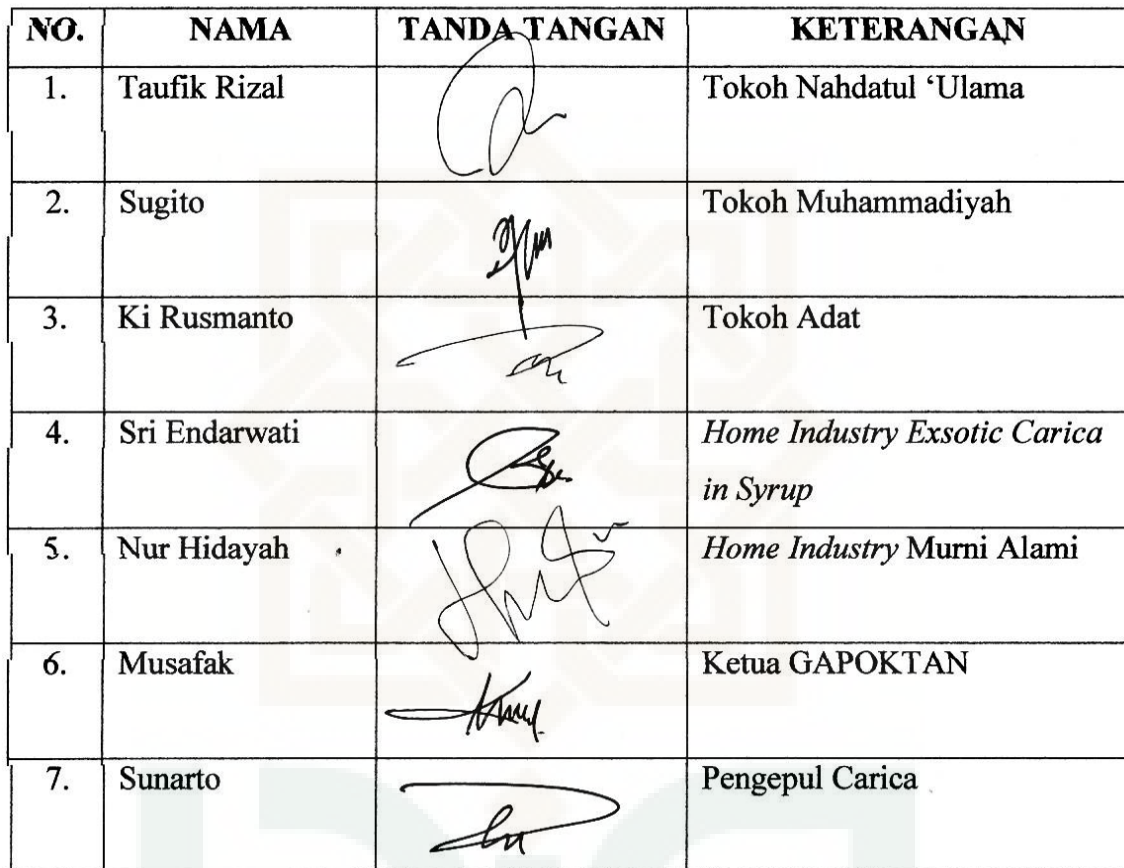 NO. NAMA TANDA TANGAN KETERANGAN
1. Taufik Rizal Tokoh Nahdatul ‘Ulama
2. Sugito Tokoh Muhammadiyah
3. Ki Rusmanto Tokoh Adat
4. Sri Endarwati Home Industry Exsotic Carica
in Syrup
5. Nur Hidayah Home Industry Murni Alami
6. Musafak Ketua GAPOKTAN
7. Sunarto Pengepul Carica